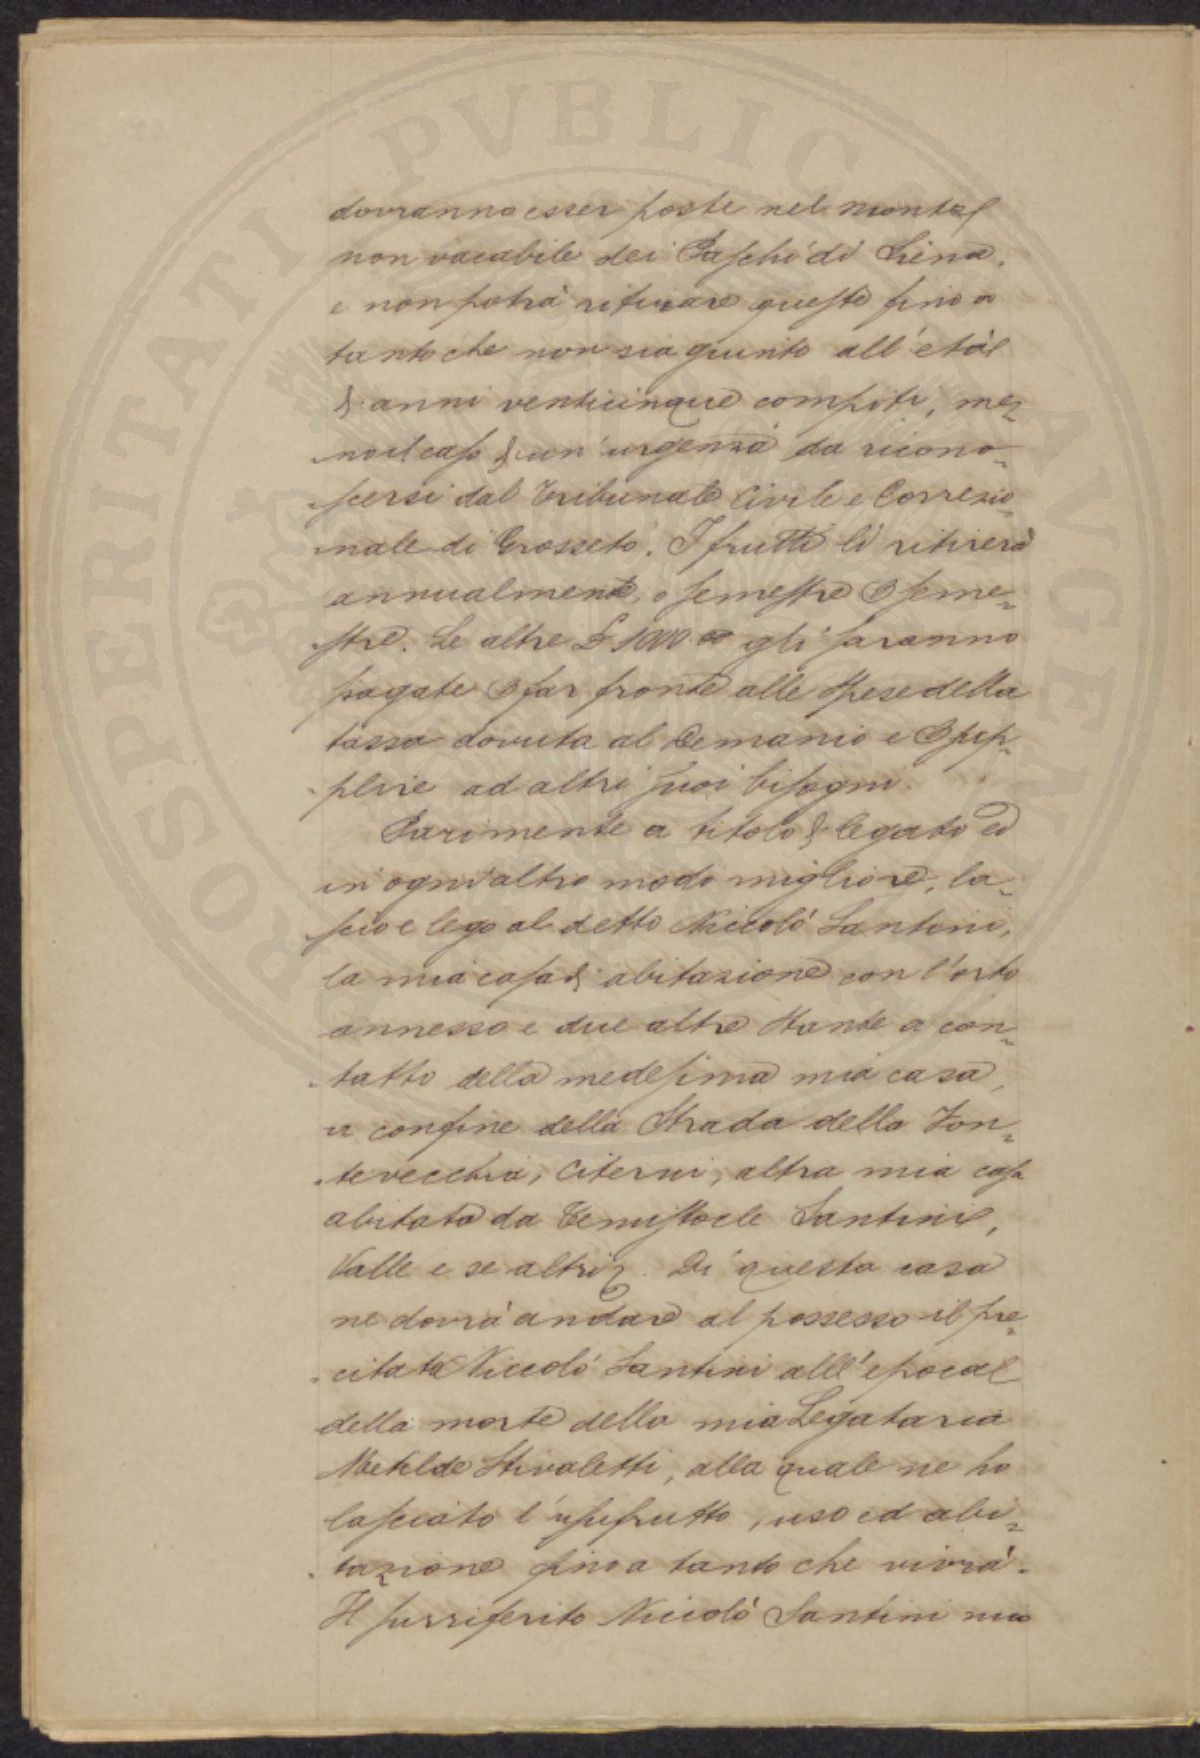 PROSPERITATI PVBLICAE AVGENDAE
dovranno esser poste nel monte
non vacabile dei Paschi di Siena,
e non potrà ritirare queste fino a
tanto che non sia giunto all'età
di anni venticinque compiti, me-
no il caso di un'urgenza da ricono-
scersi dal Tribunale Civile e Correzio-
nale di Grosseto. I frutti li ritirerà
annualmente, o semestre per seme-
stre. Le altre £ 1000.00 gli saranno
pagate per far fronte alle spese della
tassa dovuta al Demanio e per sup-
plire ad altri suoi bisogni.
Parimente a titolo di legato ed
in ogni altro modo migliore, la-
scio e lego al detto Niccolò Santini,
la mia casa di abitazione con l'orto
annesso e due altre stanze a con-
tatto della medesima mia casa,
a confine della Strada della Fon-
tevecchia, Citerni, altra mia casa
abitata da Temistocle Santini,
Valle e se altri. Di questa casa
ne dovrà andare al possesso il pre-
citato Niccolò Santini all'epoca
della morte della mia Legataria
Metilde Stivaletti, alla quale ne ho
lasciato l'usufrutto, uso ed abi-
tazione fino a tanto che vivrà.
Il surriferito Niccolò Santini mio